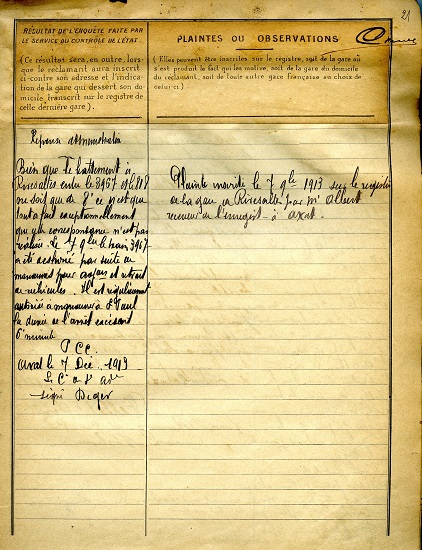 21
RÉSULTAT DE L'ENQUÊTE FAITE PAR
LE SERVICE DU CONTRÔLE DE L'ÉTAT.
(Ce résultat sera, en outre, lors-
que le réclamant aura inscrit
ci-contre son adresse et l'indica-
tion de la gare qui dessert son do-
micile, transcrit sur le registre de
cette dernière gare).
PLAINTES OU OBSERVATIONS
(Elles peuvent être inscrites sur le registre, soit de la gare où
s'est produit le fait qui les motive, soit de la gare du domicile
du réclamant, soit de toute autre gare française au choix de
celui-ci.)
Réponse administration
Bien que le battement à
Rivesaltes entre le 3967 et le
ne soit que de 8' ce n'est que
tout à fait exceptionnellement
que la correspondance n'est pas
réalisée. Le 7 9bre le train 3967
a été par suite de
manœuvres pour ajout et retrait
de véhicules. Il est régulièrement
autorisé à manœuvrer à St Paul
la durée de l'arrêt excédant
6 minutes
P.C.C.
Axat le 7 Déc. 1913
Le C
signé Deger
Plainte inscrite le 7 9bre 1913 sur le registre
de la gare de Rivesaltes par Mr Albert
receveur de l'enregist. à Axat.